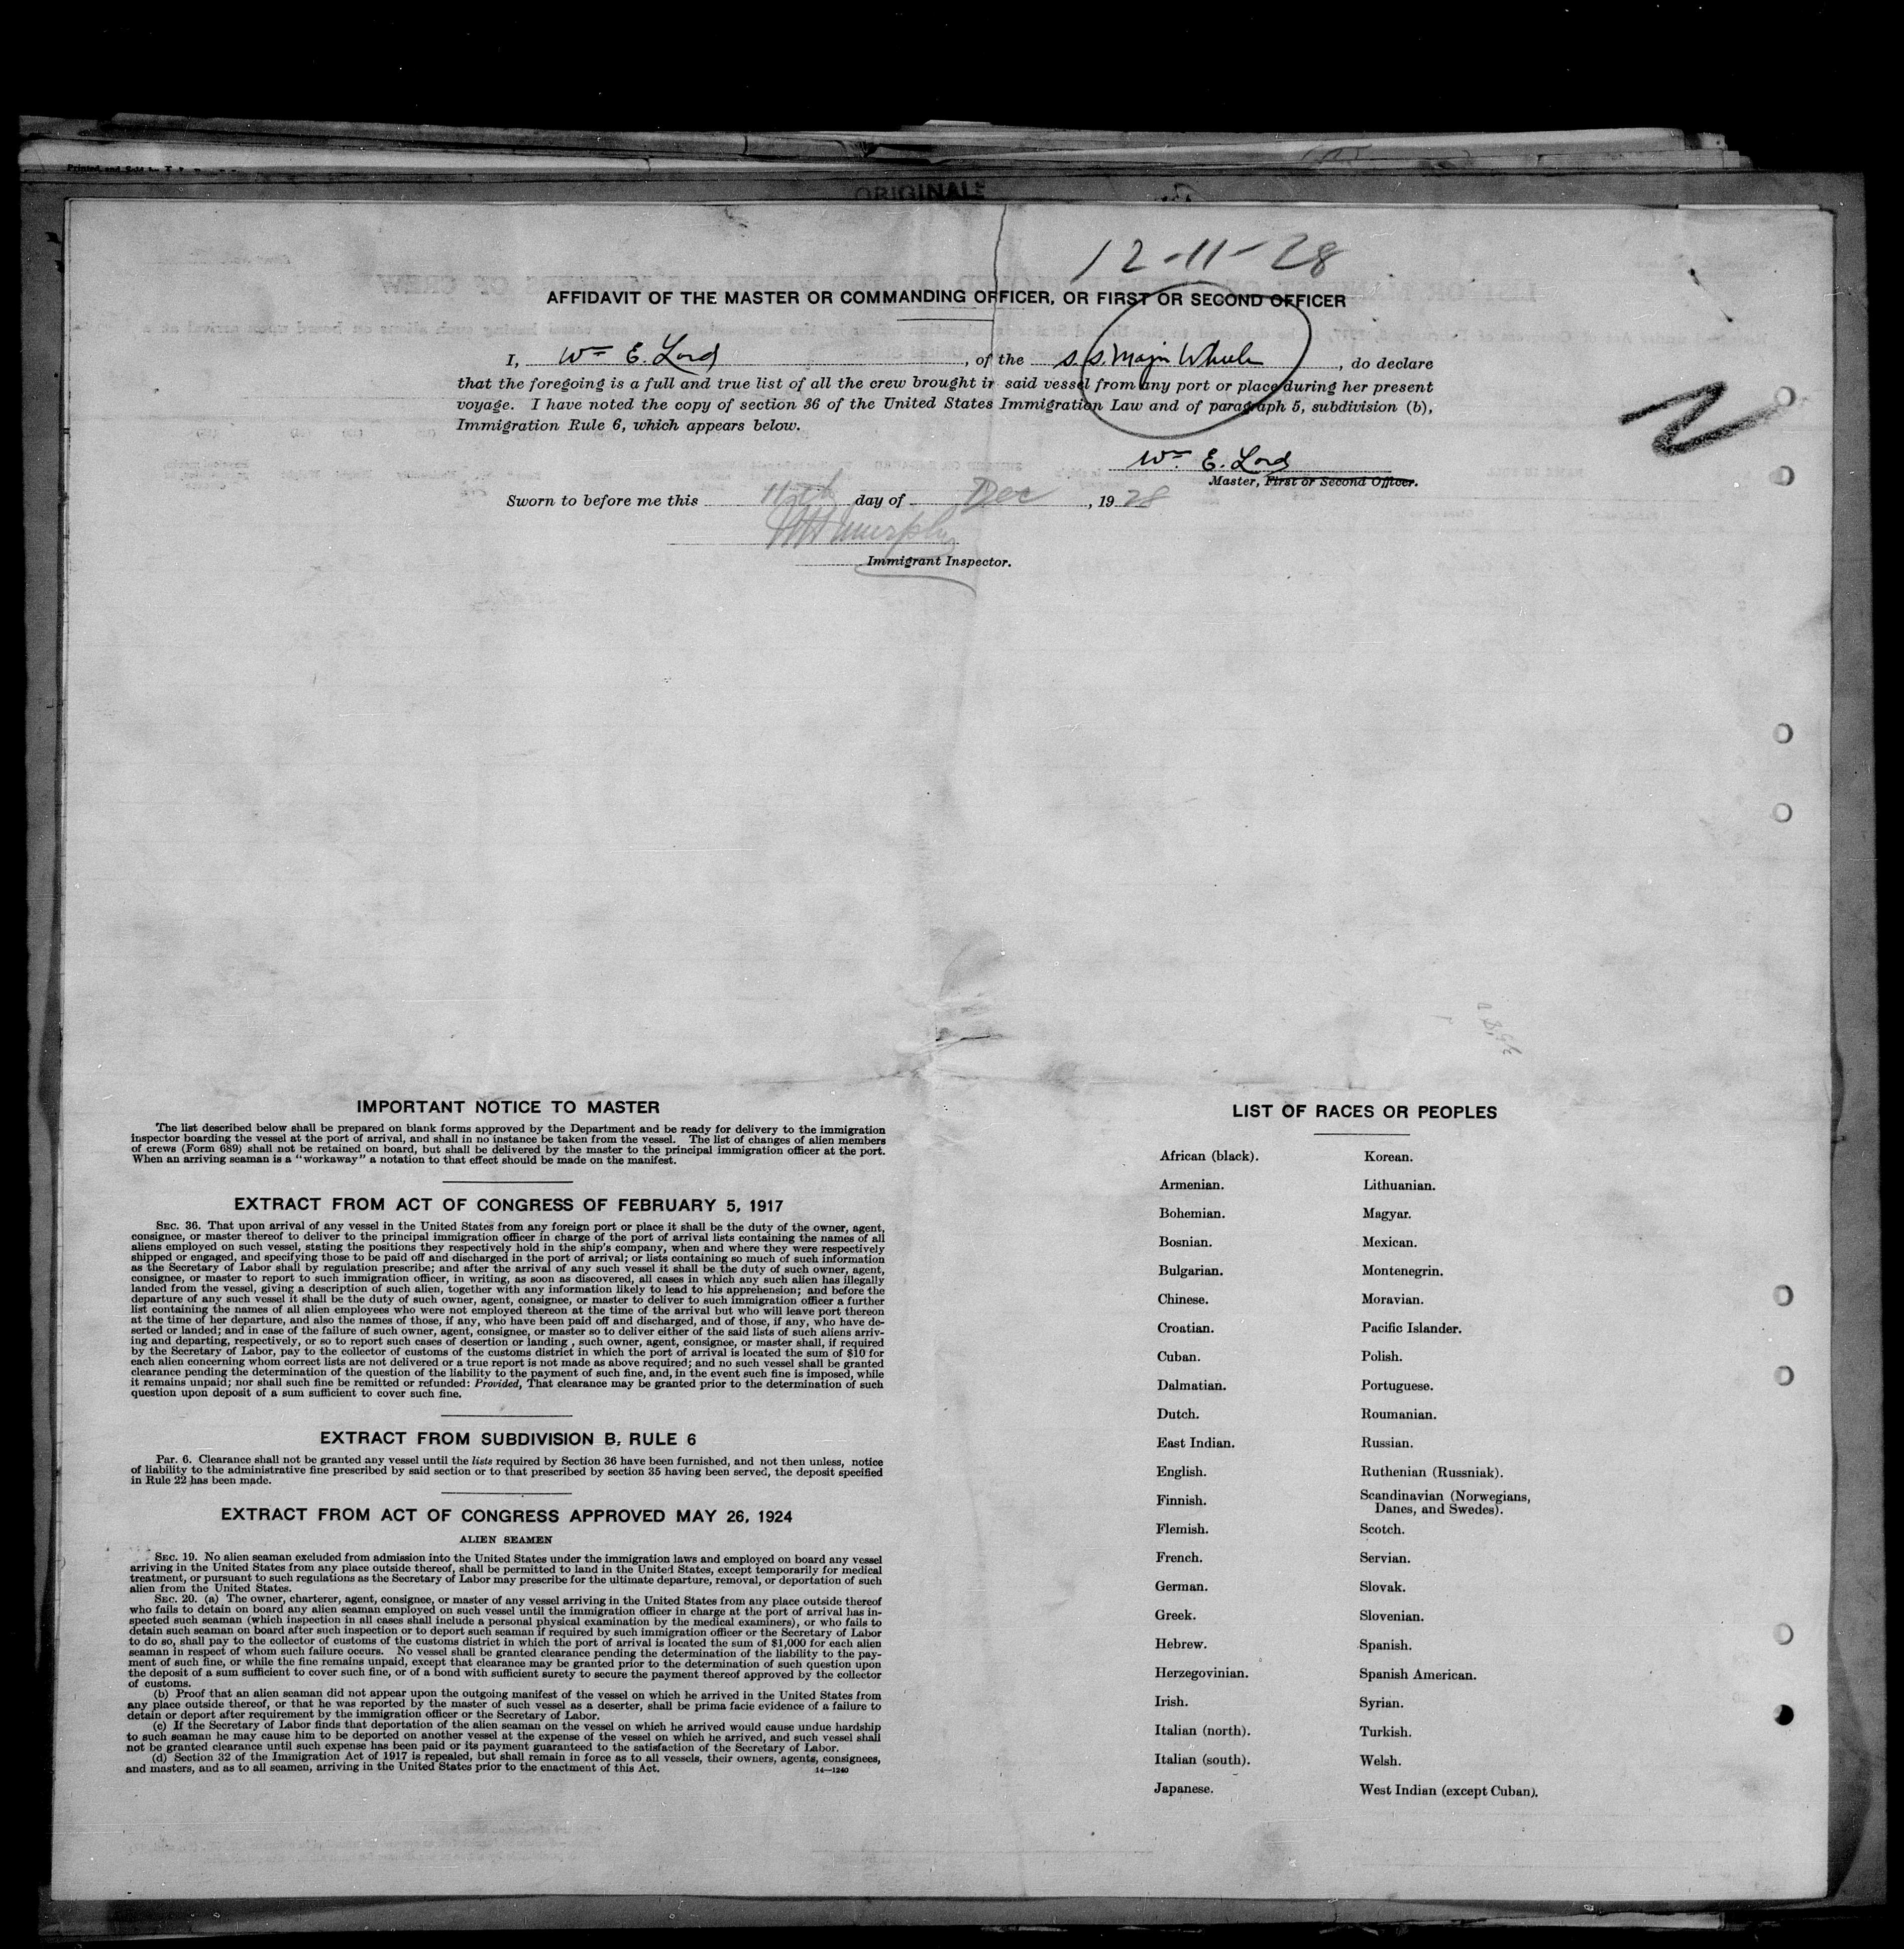 ORIGINAL
12-11-28
AFFIDAVIT OF THE MASTER OR COMMANDING OFFICER, OR FIRST OR SECOND OFFICER
I, Wm E. Lord, of the S.S. Major Wheeler, do declare
that the foregoing is a full and true list of all the crew brought in said vessel from any port or place during her present
voyage. I have noted the copy of section 36 of the United States Immigration Law and of paragraph 5, subdivision (b),
Immigration Rule 6, which appears below.
Wm. E. Lord
Master, First or Second Officer.
Sworn to before me this 11th day of Dec, 1928
Murphy
Immigrant Inspector.
IMPORTANT NOTICE TO MASTER
The list described below shall be prepared on blank forms approved by the Department and be ready for delivery to the immigration
inspector boarding the vessel at the port of arrival, and shall in no instance be taken from the vessel. The list of changes of alien members
of crews (Form 689) shall not be retained on board, but shall be delivered by the master to the principal immigration officer at the port.
When an arriving seaman is a "workaway" a notation to that effect should be made on the manifest.
EXTRACT FROM ACT OF CONGRESS OF FEBRUARY 5, 1917
SEC. 36. That upon arrival of any vessel in the United States from any foreign port or place it shall be the duty of the owner, agent,
consignee, or master thereof to deliver to the principal immigration officer in charge of the port of arrival lists containing the names of all
aliens employed on such vessel, stating the positions they respectively hold in the ship's company, when and where they were respectively
shipped or engaged, and specifying those to be paid off and discharged in the port of arrival; or lists containing so much of such information
as the Secretary of Labor shall by regulation prescribe; and after the arrival of any such vessel it shall be the duty of such owner, agent,
consignee, or master to report to such immigration officer, in writing, as soon as discovered, all cases in which any such alien has illegally
landed from the vessel, giving a description of such alien, together with any information likely to lead to his apprehension; and before the
departure of any such vessel it shall be the duty of such owner, agent, consignee, or master to deliver to such immigration officer a further
list containing the names of all alien employees who were not employed thereon at the time of the arrival but who will leave port thereon
at the time of her departure, and also the names of those, if any, who have been paid off and discharged, and of those, if any, who have de-
serted or landed; and in case of the failure of such owner, agent, consignee, or master so to deliver either of the said lists of such aliens arriv-
ing and departing, respectively, or so to report such cases of desertion or landing , such owner, agent, consignee, or master shall, if required
by the Secretary of Labor, pay to the collector of customs of the customs district in which the port of arrival is located the sum of $10 for
each alien concerning whom correct lists are not delivered or a true report is not made as above required; and no such vessel shall be granted
clearance pending the determination of the question of the liability to the payment of such fine, and, in the event such fine is imposed, while
it remains unpaid; nor shall such fine be remitted or refunded: Provided, That clearance may be granted prior to the determination of such
question upon deposit of a sum sufficient to cover such fine.
EXTRACT FROM SUBDIVISION B, RULE 6
Par. 6. Clearance shall not be granted any vessel until the lists required by Section 36 have been furnished, and not then unless, notice
of liability to the administrative fine prescribed by said section or to that prescribed by section 35 having been served, the deposit specified
in Rule 22 has been made.
EXTRACT FROM ACT OF CONGRESS APPROVED MAY 26, 1924
ALIEN SEAMEN
SEC. 19. No alien seaman excluded from admission into the United States under the immigration laws and employed on board any vessel
arriving in the United States from any place outside thereof, shall be permitted to land in the United States, except temporarily for medical
treatment, or pursuant to such regulations as the Secretary of Labor may prescribe for the ultimate departure, removal, or deportation of such
alien from the United States.
SEC. 20. (a) The owner, charterer, agent, consignee, or master of any vessel arriving in the United States from any place outside thereof
who fails to detain on board any alien seaman employed on such vessel until the immigration officer in charge at the port of arrival has in-
spected such seaman (which inspection in all cases shall include a personal physical examination by the medical examiners), or who fails to
detain such seaman on board after such inspection or to deport such seaman if required by such immigration officer or the Secretary of Labor
to do so, shall pay to the collector of customs of the customs district in which the port of arrival is located the sum of $1,000 for each alien
seaman in respect of whom such failure occurs. No vessel shall be granted clearance pending the determination of the liability to the pay-
ment of such fine, or while the fine remains unpaid, except that clearance may be granted prior to the determination of such question upon
the deposit of a sum sufficient to cover such fine, or of a bond with sufficient surety to secure the payment thereof approved by the collector
of customs.
(b) Proof that an alien seaman did not appear upon the outgoing manifest of the vessel on which he arrived in the United States from
any place outside thereof, or that he was reported by the master of such vessel as a deserter, shall be prima facie evidence of a failure to
detain or deport after requirement by the immigration officer or the Secretary of Labor.
(c) If the Secretary of Labor finds that deportation of the alien seaman on the vessel on which he arrived would cause undue hardship
to such seaman he may cause him to be deported on another vessel at the expense of the vessel on which he arrived, and such vessel shall
not be granted clearance until such expense has been paid or its payment guaranteed to the satisfaction of the Secretary of Labor.
(d) Section 32 of the Immigration Act of 1917 is repealed, but shall remain in force as to all vessels, their owners, agents, consignees,
and masters, and as to all seamen, arriving in the United States prior to the enactment of this Act.
14—1240
LIST OF RACES OR PEOPLES
African (black).
Armenian.
Bohemian.
Bosnian.
Bulgarian.
Chinese.
Croatian.
Cuban.
Dalmatian.
Dutch.
East Indian.
English.
Finnish.
Flemish.
French.
German.
Greek.
Hebrew.
Herzegovinian.
Irish.
Italian (north).
Italian (south).
Japanese.
Korean.
Lithuanian.
Magyar.
Mexican.
Montenegrin.
Moravian.
Pacific Islander.
Polish.
Portuguese.
Roumanian.
Russian.
Ruthenian (Russniak).
Scandinavian (Norwegians,
Danes, and Swedes).
Scotch.
Servian.
Slovak.
Slovenian.
Spanish.
Spanish American.
Syrian.
Turkish.
Welsh.
West Indian (except Cuban).